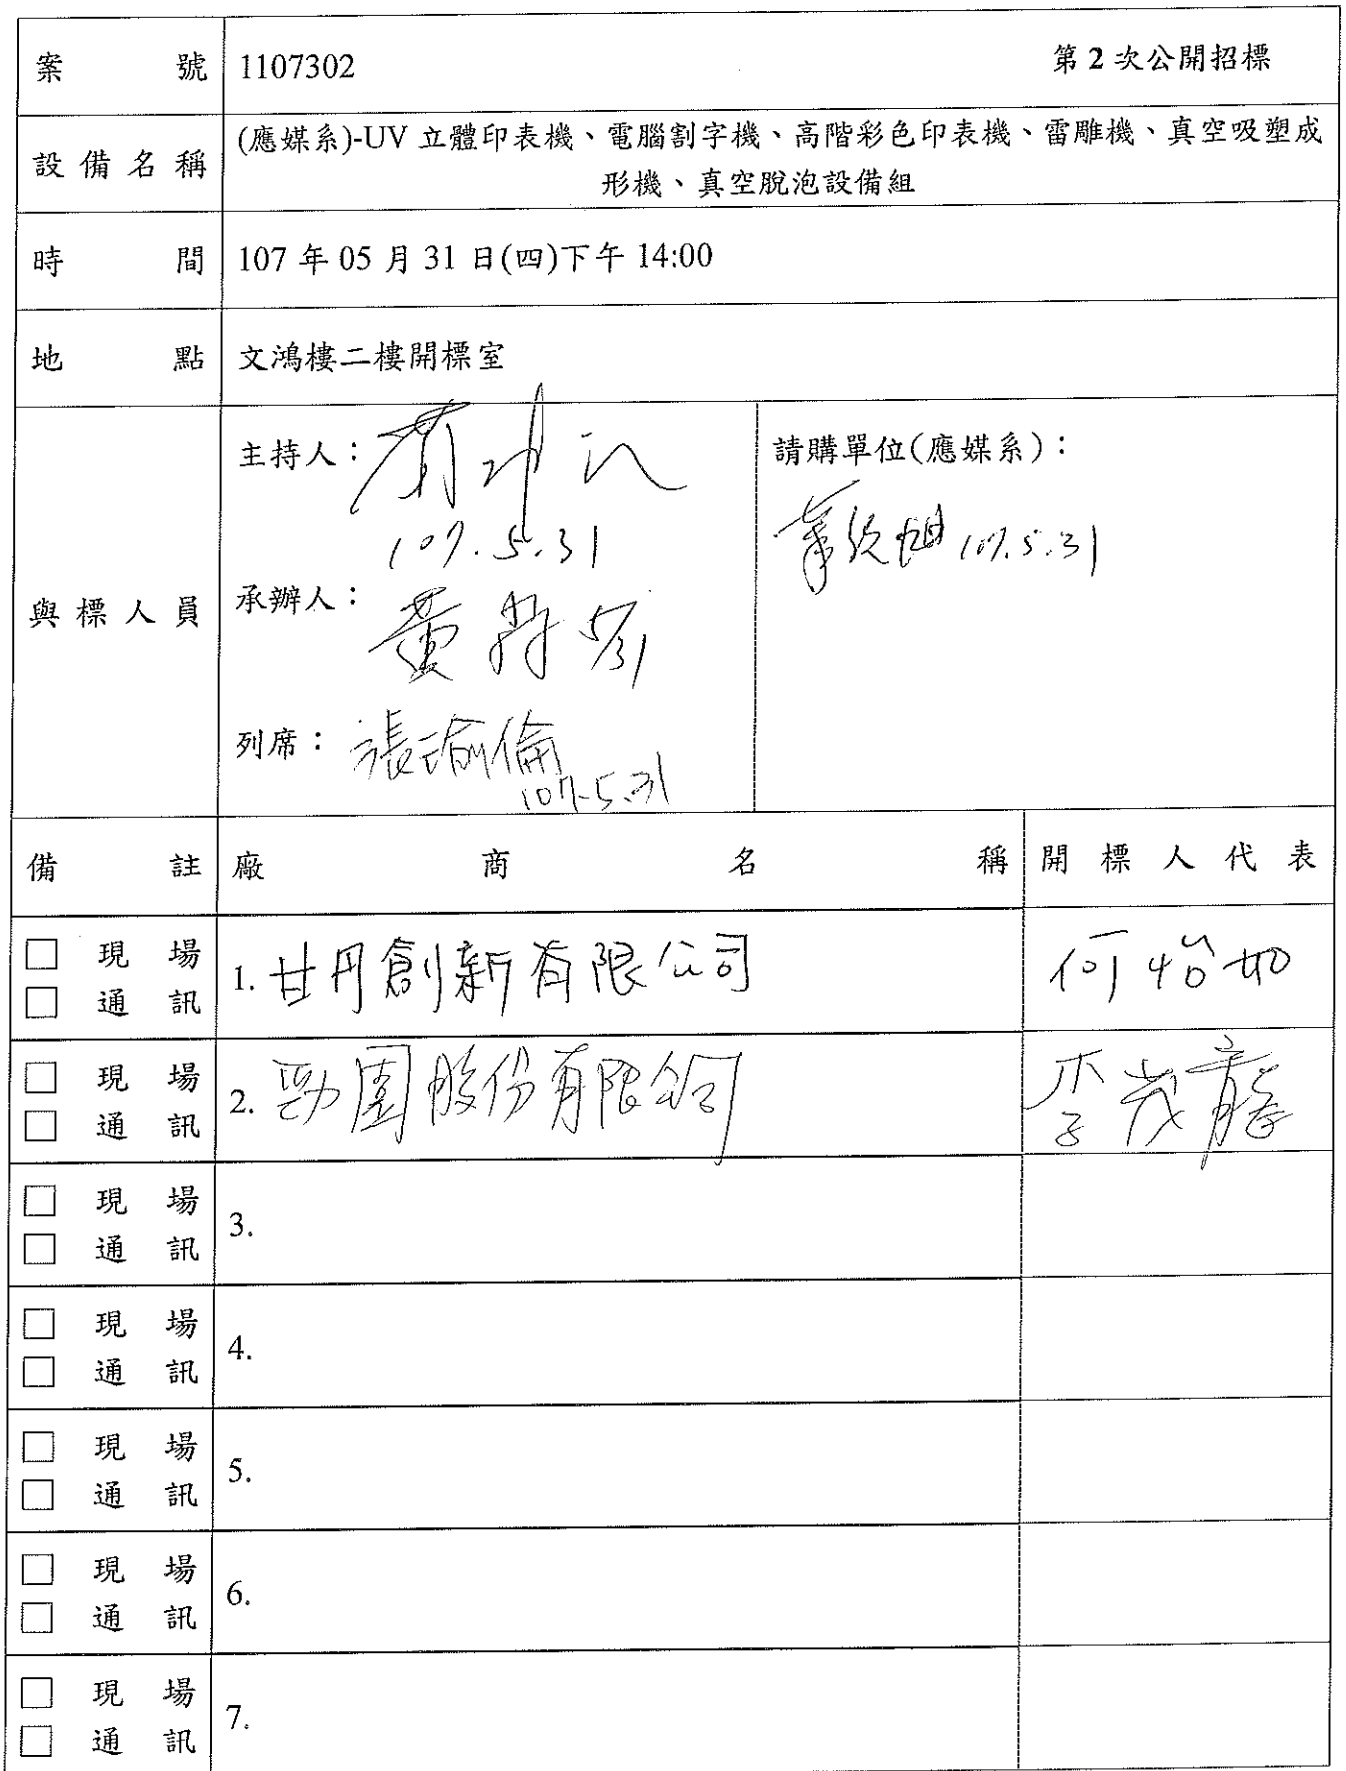 案號 1107302 第2次公開招標
設備名稱 (應媒系)-UV 立體印表機、電腦割字機、高階彩色印表機、雷雕機、真空吸塑成
形機、真空脫泡設備組
時間 107 年 05 月 31 日(四)下午 14:00
地點 文鴻樓二樓開標室
與標人員
主持人：
107.5.31
承辦人：
黃 5/31
列席：張瑜倫
107.5.31
請購單位(應媒系)：
107.5.31
備註 廠商名稱 開標人代表
□ 現場
□ 通訊
1. 甘丹創新有限公司 何怡如
□ 現場
□ 通訊
2. 勁園股份有限公司 李茂
□ 現場
□ 通訊
3.
□ 現場
□ 通訊
4.
□ 現場
□ 通訊
5.
□ 現場
□ 通訊
6.
□ 現場
□ 通訊
7.